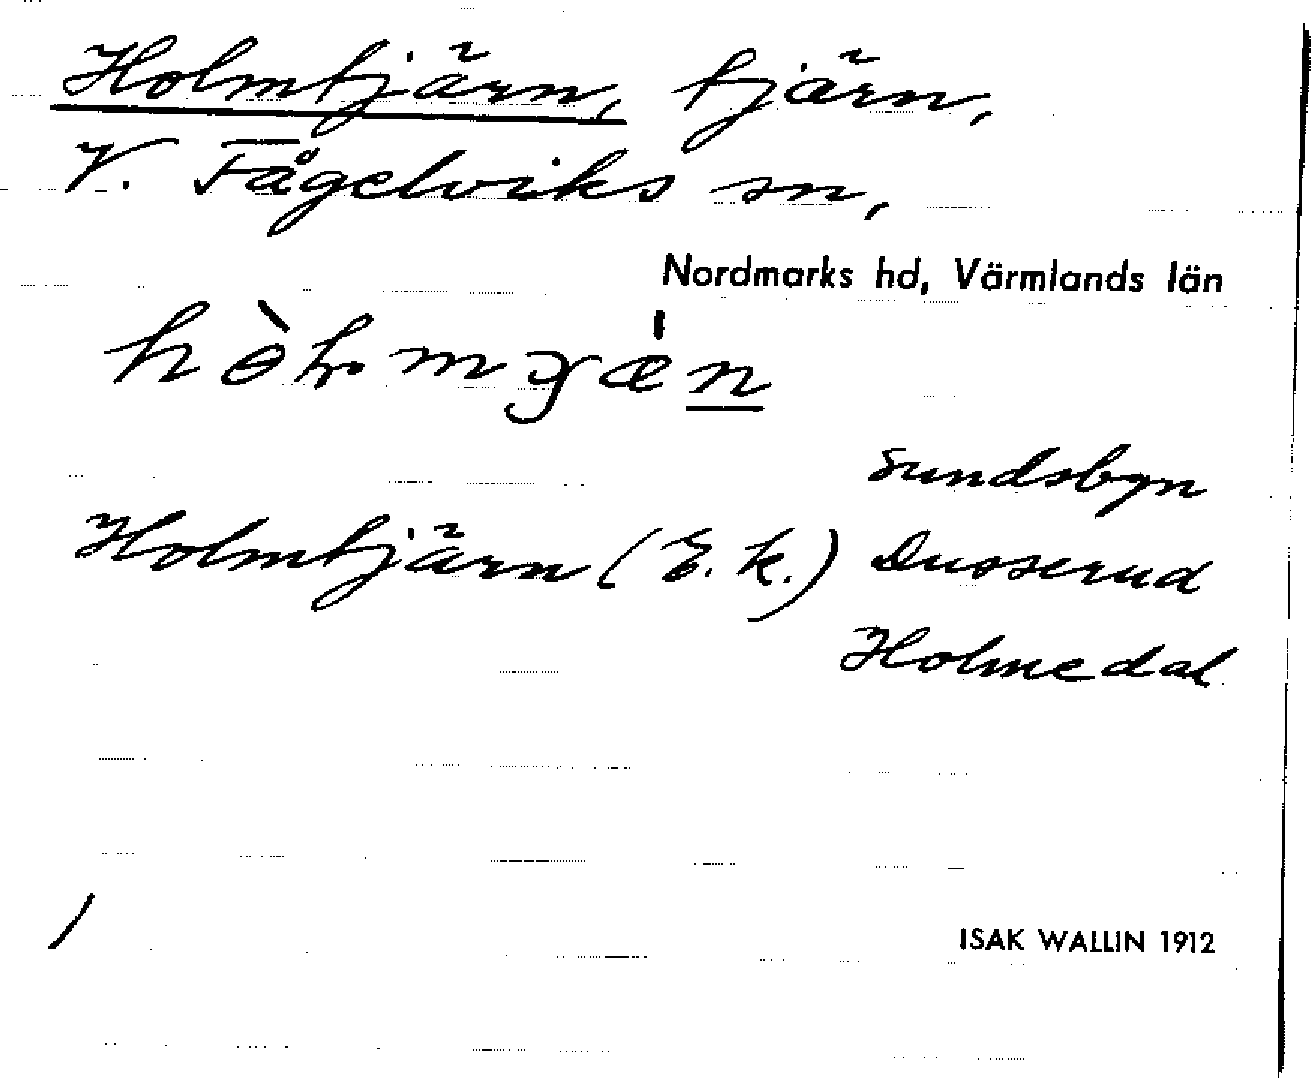 Holmtjärn, tjärn,
V. Fågelviks sn,
Nordmarks hd, Värmlands län
Sundsbyn
Holmtjärn (E. k.) Dusserud
Holmedal
ISAK WALLIN 1912